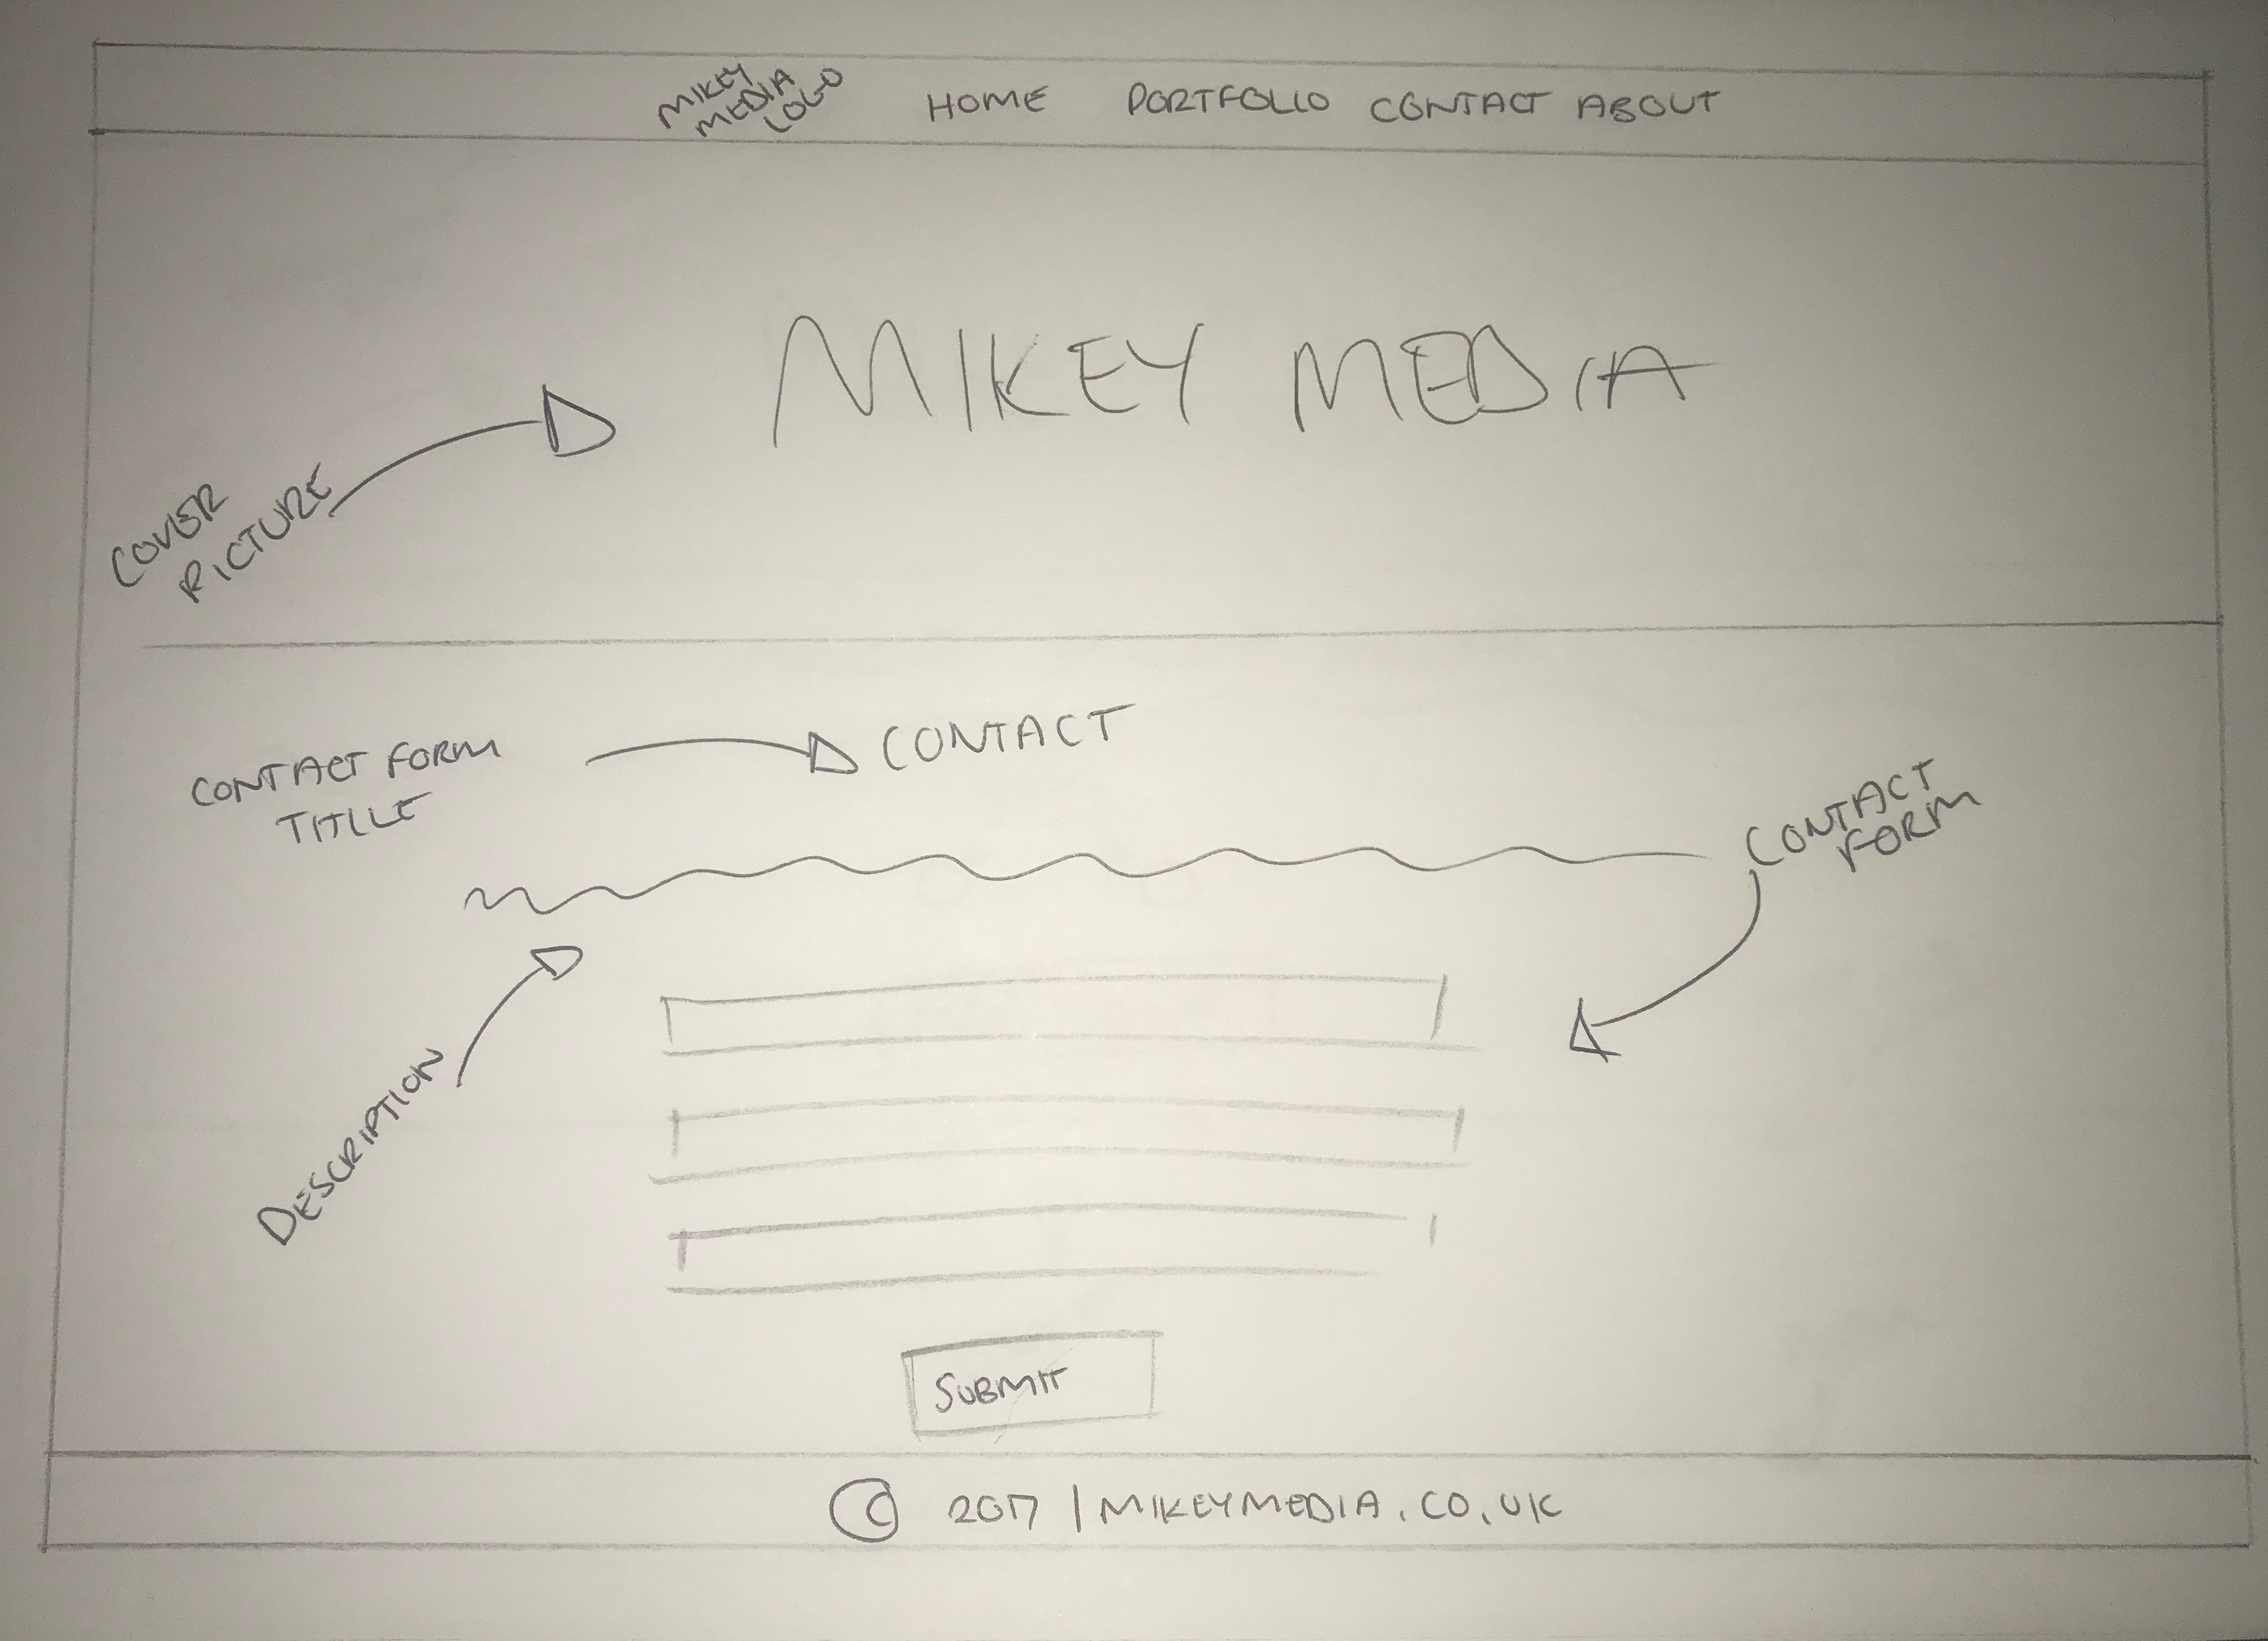 MIKEY
MEDIA
LOGO
HOME PORTFOLIO CONTACT ABOUT
MIKEY MEDIA
COVER
PICTURE
CONTACT FORM
TITLE
CONTACT
CONTACT
FORM
DESCRIPTION
SUBMIT
© 2017 | MIKEYMEDIA.CO.UK